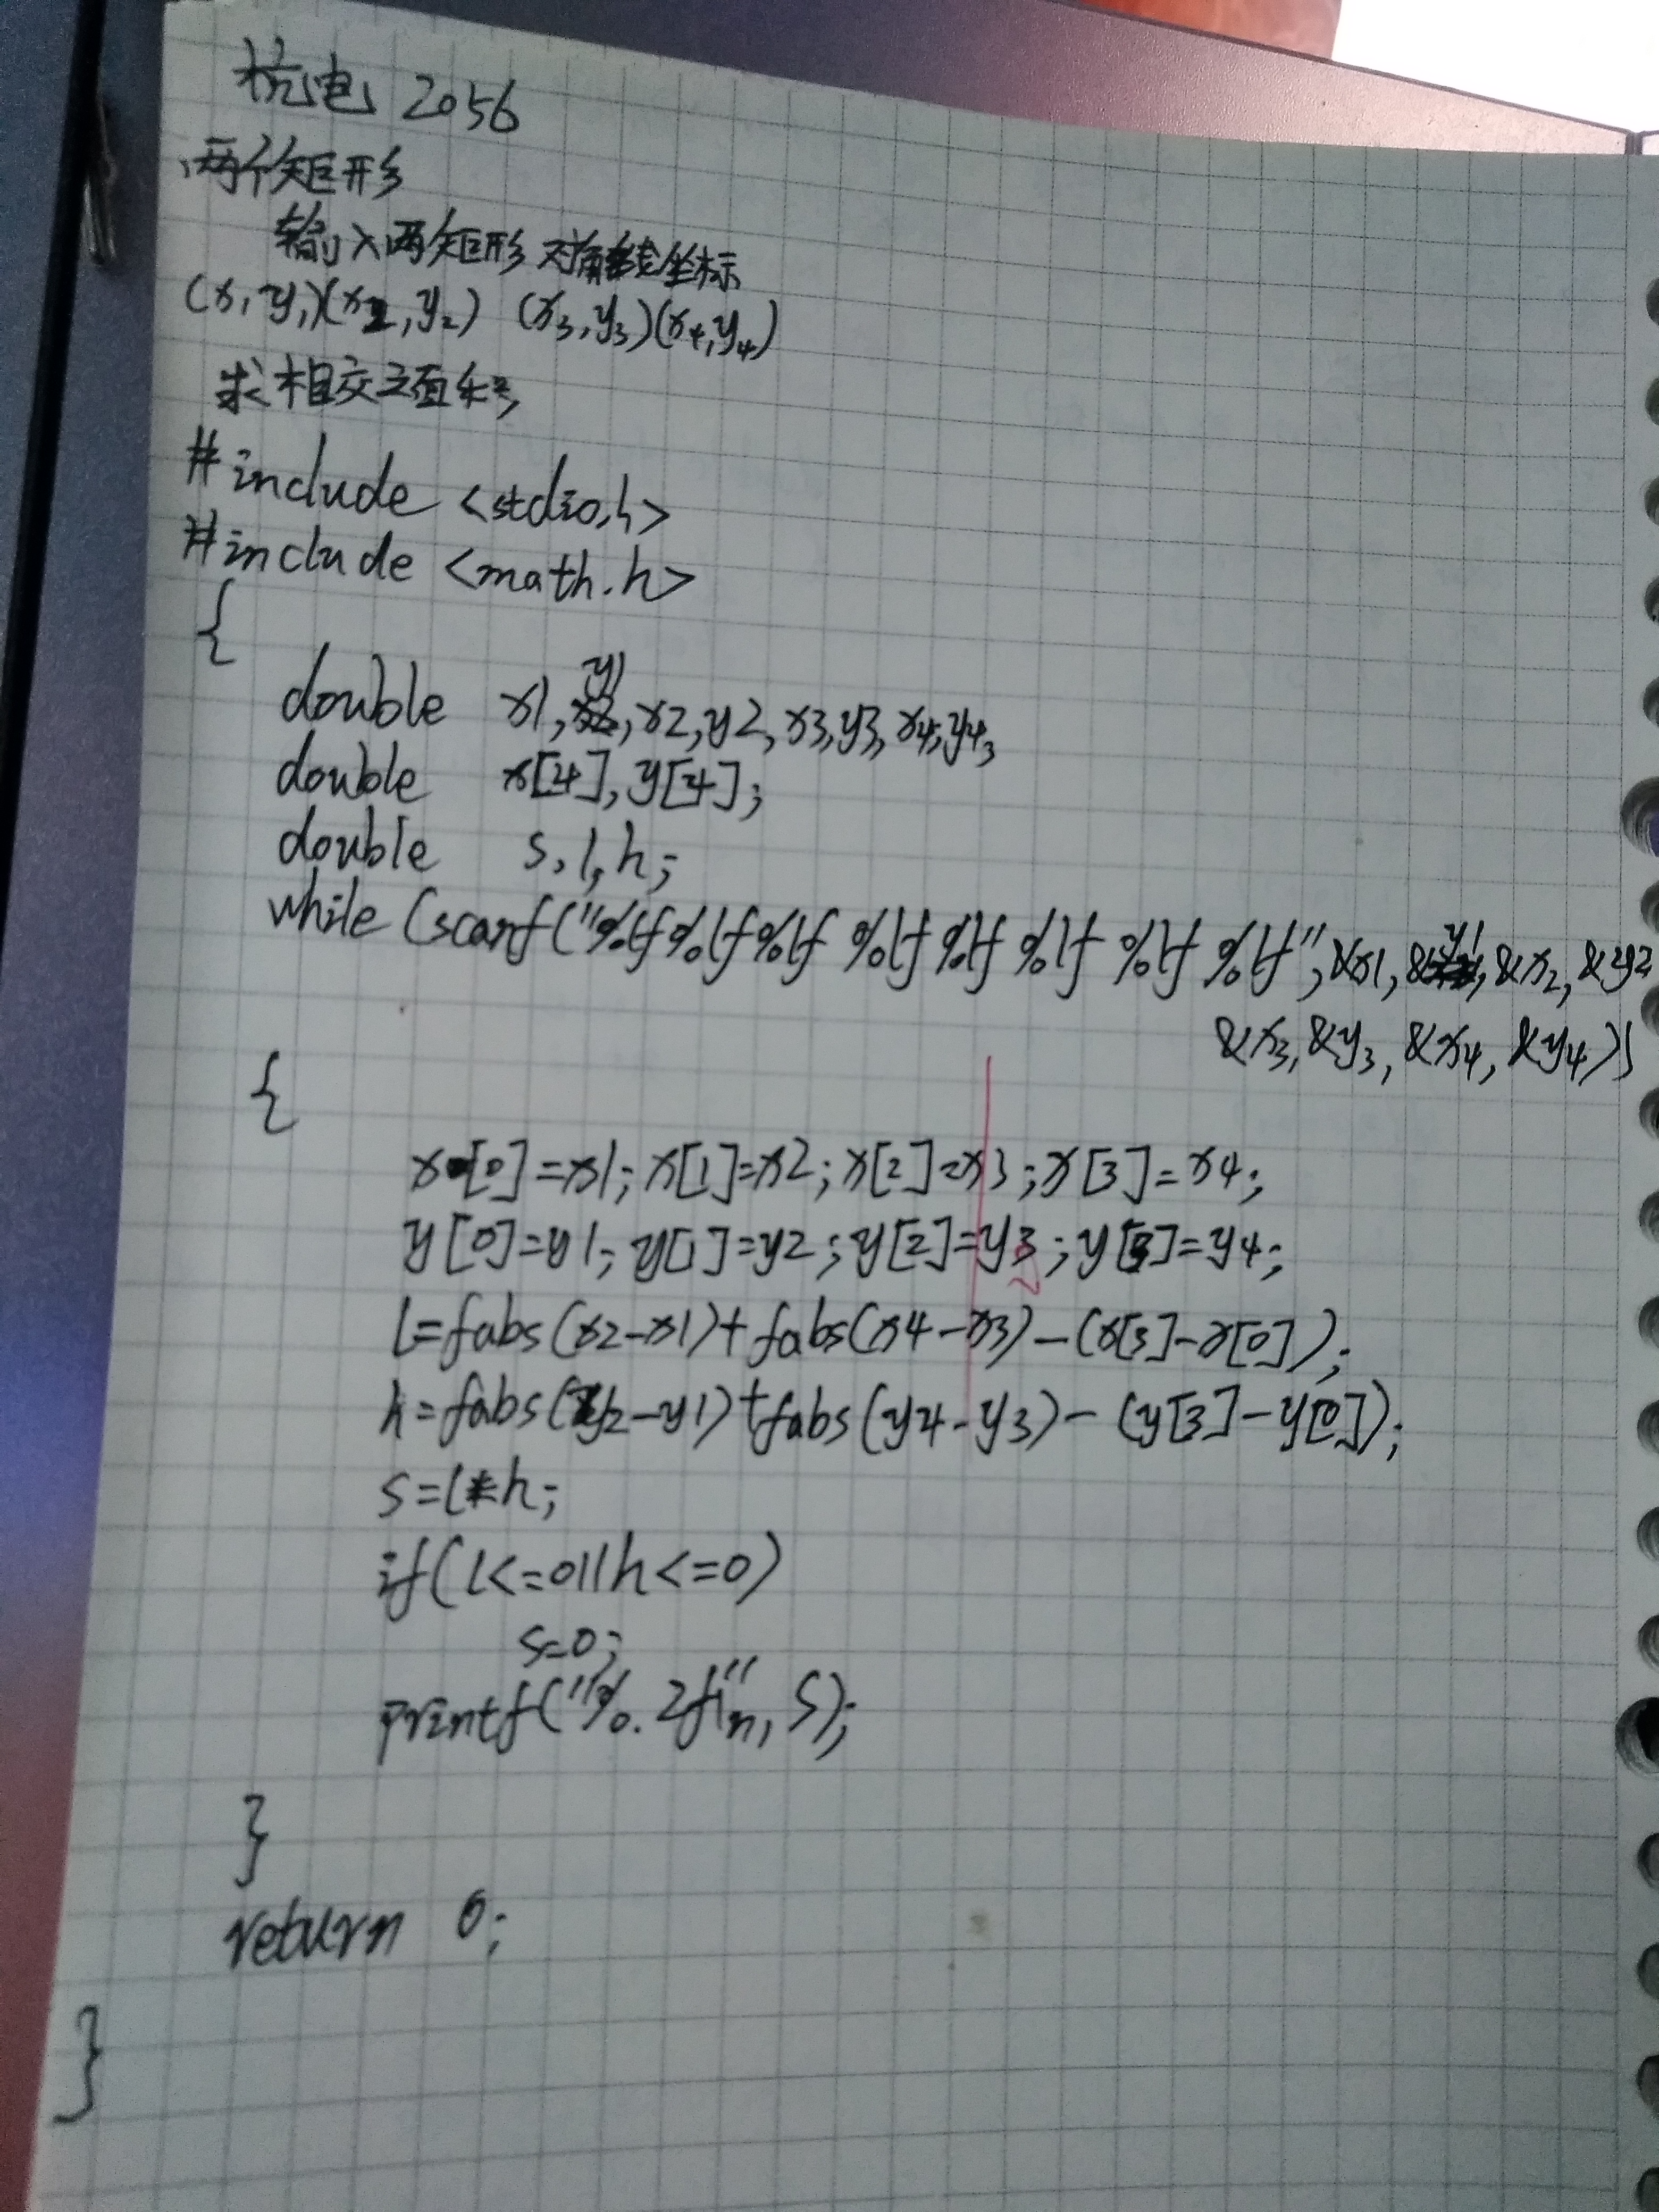 杭电 2056
两个矩形
输入两矩形对角线坐标
(x1,y1)(x2,y2) (x3,y3)(x4,y4)
求相交之面积
#include <stdio.h>
#include <math.h>
{
double x1,y1,x2,y2,x3,y3,x4,y4;
double x[4],y[4];
double s,l,h;
while (scanf("%lf%lf%lf %lf %lf %lf %lf %lf",&x1,&y1,&x2,&y2
&x3,&y3,&x4,&y4))
{
x[0]=x1;x[1]=x2;x[2]=x3;x[3]=x4;
y[0]=y1;y[1]=y2;y[2]=y3;y[3]=y4;
l=fabs(x2-x1)+fabs(x4-x3)-(x[3]-x[0]);
h=fabs(y2-y1)+fabs(y4-y3)-(y[3]-y[0]);
s=l*h;
if(l<=0||h<=0)
s=0;
printf("%.2f\n",s);
}
return 0;
}